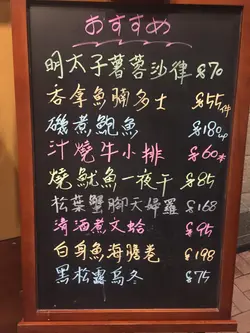 おすすめ
明太子薯蓉沙律 $70
吞拿魚腩多士 $55/件
磯煮鮑魚 $180/4p
汁燒牛小排 $60
燒魷魚一夜干 $85
松葉蟹腳天婦羅 $168
清酒煮文蛤 $95
白身魚海膽卷 $198
黑松露烏冬 $75